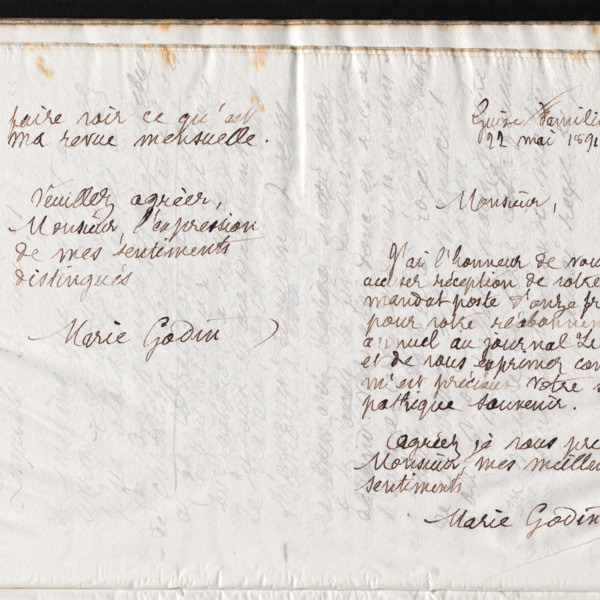 faire voir ce qu'est
ma revue mensuelle.
Veuillez agréer,
Monsieur, l'expression
de mes sentiments
distingués
Marie Godin
Guise Famili
22 mai 1891
Monsieur,
J'ai l'honneur de vou
accuser réception de votre
mandat poste d'onze fr
pour votre réabonnem
annuel au journal Le
et de vous exprimer com
m'est précieux votre s
pathique souvenir.
Agréez, je vous pre
Monsieur, mes meille
sentiments
Marie Godin